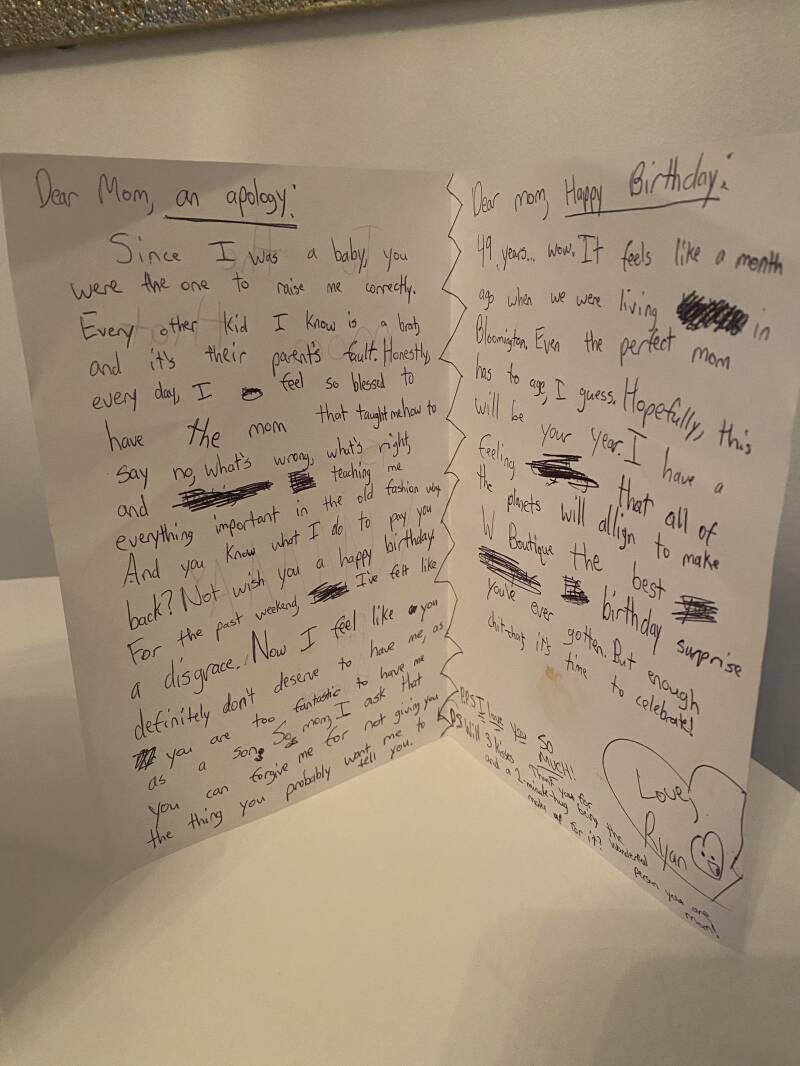 Dear Mom, an apology:
Since I was a baby, you
were the one to raise me correctly.
Every other kid I know is a brat,
and it's their parent's fault. Honestly,
every day, I feel so blessed to
have the mom that taught me how to
say no, what's wrong, what's right,
and teaching me
everything important in the old fashion way.
And you know what I do to pay you
back? Not wish you a happy birthday.
For the past weekend, I've felt like
a disgrace. Now I feel like you
definitely don't deserve to have me, as
you are too fantastic to have me
as a son. So, mom, I ask that
you can forgive me for not giving you
the thing you probably want me to
tell you.
Dear mom, Happy Birthday:
49 years... wow. It feels like a month
ago when we were living in
Bloomington. Even the perfect mom
has to age, I guess. Hopefully, this
will be your year. I have a
feeling that all of
the planets will allign to make
W Boutique the best
birthday surprise
you've ever gotten. But enough
chit-chat, it's time to celebrate!
PS Will 3 kisses
and a 2-minute-hug
make up for it?
PPS I love you SO
MUCH!
Thank you for
being the
wonderful
person you are
mom!
Love,
Ryan